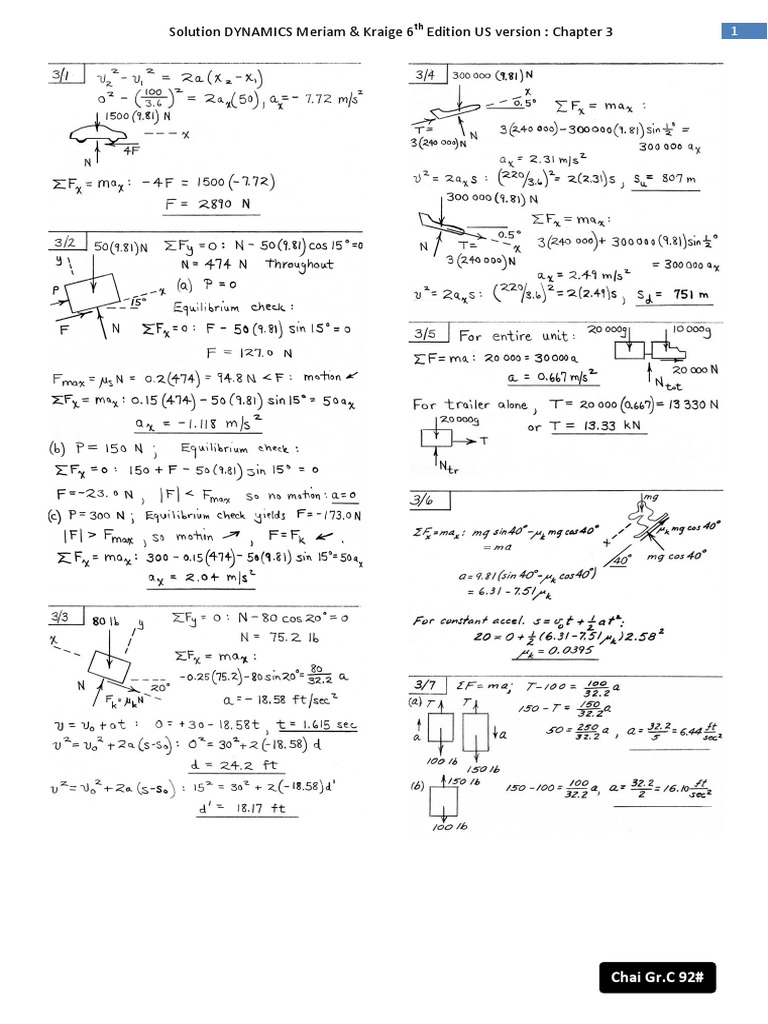 Solution DYNAMICS Meriam & Kraige 6th Edition US version : Chapter 3
1
3/1
v₂² - v₁² = 2a(x₂-x₁)
0² - (100/3.6)² = 2aₓ(50), aₓ = - 7.72 m/s²
1500(9.81) N
x
4F
N
ΣFₓ = maₓ: -4F = 1500(-7.72)
F = 2890 N
3/2
50(9.81)N
ΣFy = 0: N - 50(9.81)cos 15°=0
y
N = 474 N throughout
(a) P = 0
x
P
15°
Equilibrium check:
F
N
ΣFₓ = 0: F - 50(9.81) sin 15° = 0
F = 127.0 N
Fmax = μsN = 0.2(474) = 94.8N < F: motion ↙
ΣFₓ = maₓ: 0.15(474) - 50(9.81)sin15° = 50aₓ
aₓ = -1.118 m/s²
(b) P = 150 N; Equilibrium check:
ΣFₓ = 0: 150 + F - 50(9.81) sin 15° = 0
F = -23.0 N, |F| < Fmax so no motion: a=0
(c) P = 300 N; Equilibrium check yields F=-173.0N
|F| > Fmax, so motion ↗, F=Fk ↙.
ΣFₓ = maₓ: 300 - 0.15(474)-50(9.81) sin 15°=50aₓ
aₓ = 2.04 m/s²
3/3
80 lb
y
ΣFy = 0: N - 80 cos 20° = 0
x
N = 75.2 lb
ΣFₓ = maₓ:
-0.25(75.2)-80sin20° = 80/32.2 a
N
20°
Fk = μkN
a = - 18.58 ft/sec²
v = v₀ + at: 0 = +30 - 18.58t, t = 1.615 sec
v² = v₀² + 2a(s-s₀): 0² = 30² + 2(-18.58) d
d = 24.2 ft
v² = v₀² + 2a(s-s₀): 15² = 30² + 2(-18.58)d'
d' = 18.17 ft
3/4
300 000 (9.81) N
x
0.5°
ΣFₓ = maₓ:
T =
N
3(240 000)
3(240 000)-300 000(9.81)sin ½° =
300 000 aₓ
aₓ = 2.31 m/s²
v² = 2aₓs: (220/3.6)² = 2(2.31)s, Su = 807 m
300 000 (9.81) N
ΣFₓ = maₓ:
0.5°
N
T=
x
3(240 000)+ 300 000 (9.81)sin ½°
3 (240 000)N
= 300 000 aₓ
aₓ = 2.49 m/s²
v² = 2aₓs: (220/3.6)² = 2(2.49)s, Sd = 751 m
3/5
For entire unit:
20 000g
10 000g
ΣF = ma: 20 000 = 30 000 a
a = 0.667 m/s²
20 000 N
Ntot
For trailer alone, T = 20 000(0.667) = 13 330 N
20 000g
or T = 13.33 kN
T
Ntr
3/6
mg
ΣFₓ = maₓ: mg sin40° - μk mg cos40°
= ma
μk mg cos 40°
+
40°
mg cos 40°
a = 9.81(sin 40° - μk cos40°)
= 6.31 - 7.51μk
For constant accel. s = v₀t + ½at²:
20 = 0 + ½(6.31-7.51μk)2.58²
μk = 0.0395
3/7
ΣF = ma; T-100 = 100/32.2 a
(a)
T
T
150 - T = 150/32.2 a
a
a
50 = 250/32.2 a, a = 32.2/5 = 6.44 ft/sec²
100 lb
150 lb
(b)
150 lb
150-100 = 100/32.2 a, a = 32.2/2 = 16.10 ft/sec²
100 lb
Chai Gr.C 92#